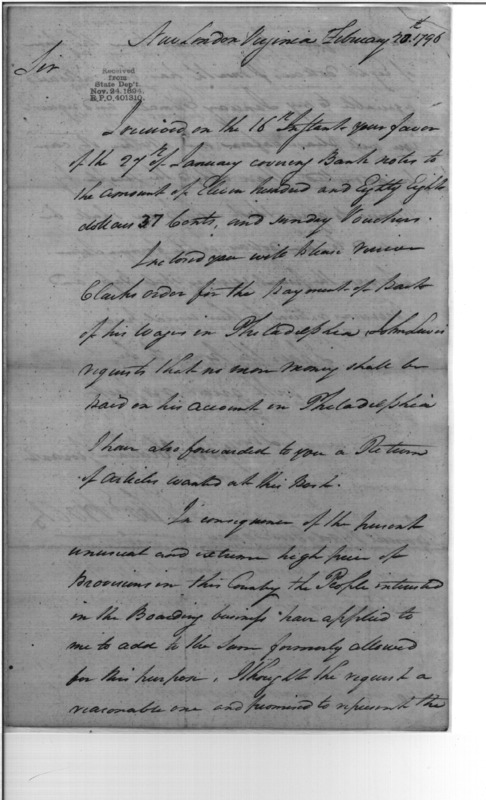 New London Virginia February 20.th 1796
Sir
Received
from
State Dep't.
Nov. 24, 1894.
R.P.O. 401310.
I received on the 16th Instant your favor
of the 27th of January covering Bank notes to
the amount of Eleven hundred and Eighty Eight
dollars 37 Cents, and sunday Vouchers.
Inclosed you will please receive
Clarks order for the payment of Part
of his Wages in Philadelphia John Lewis
requests that no more money shall be
paid on his account in Philadelphia
I have also forwarded to you a Return
of articles wanted at this Post.
In consequence of the present
unusual and extreem high price of
Provisions in this County the People intrusted
in the Boarding business have applied to
me to add to the Sum formerly allowed
for this purpose, I thought the request a
reasonable one and promised to represent the